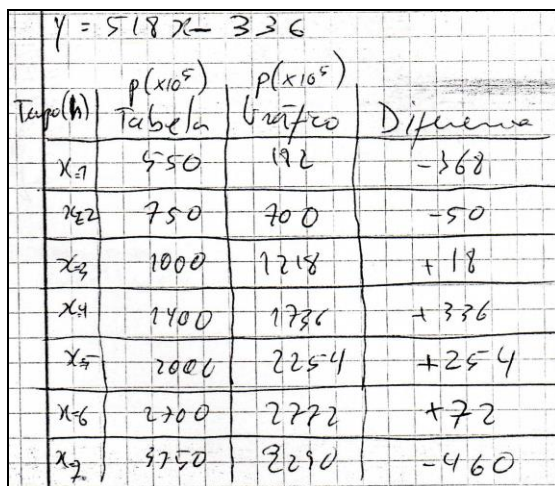 y = 518x - 336
p(x10⁵) p(x10⁵)
Tempo(h) Tabela Gráfico Diferença
x=1 550 182 -368
x=2 750 700 -50
x=3 1000 1218 + 18
x=4 1400 1736 + 336
x=5 2000 2254 +254
x=6 2700 2772 +72
x=7 3750 3290 -460